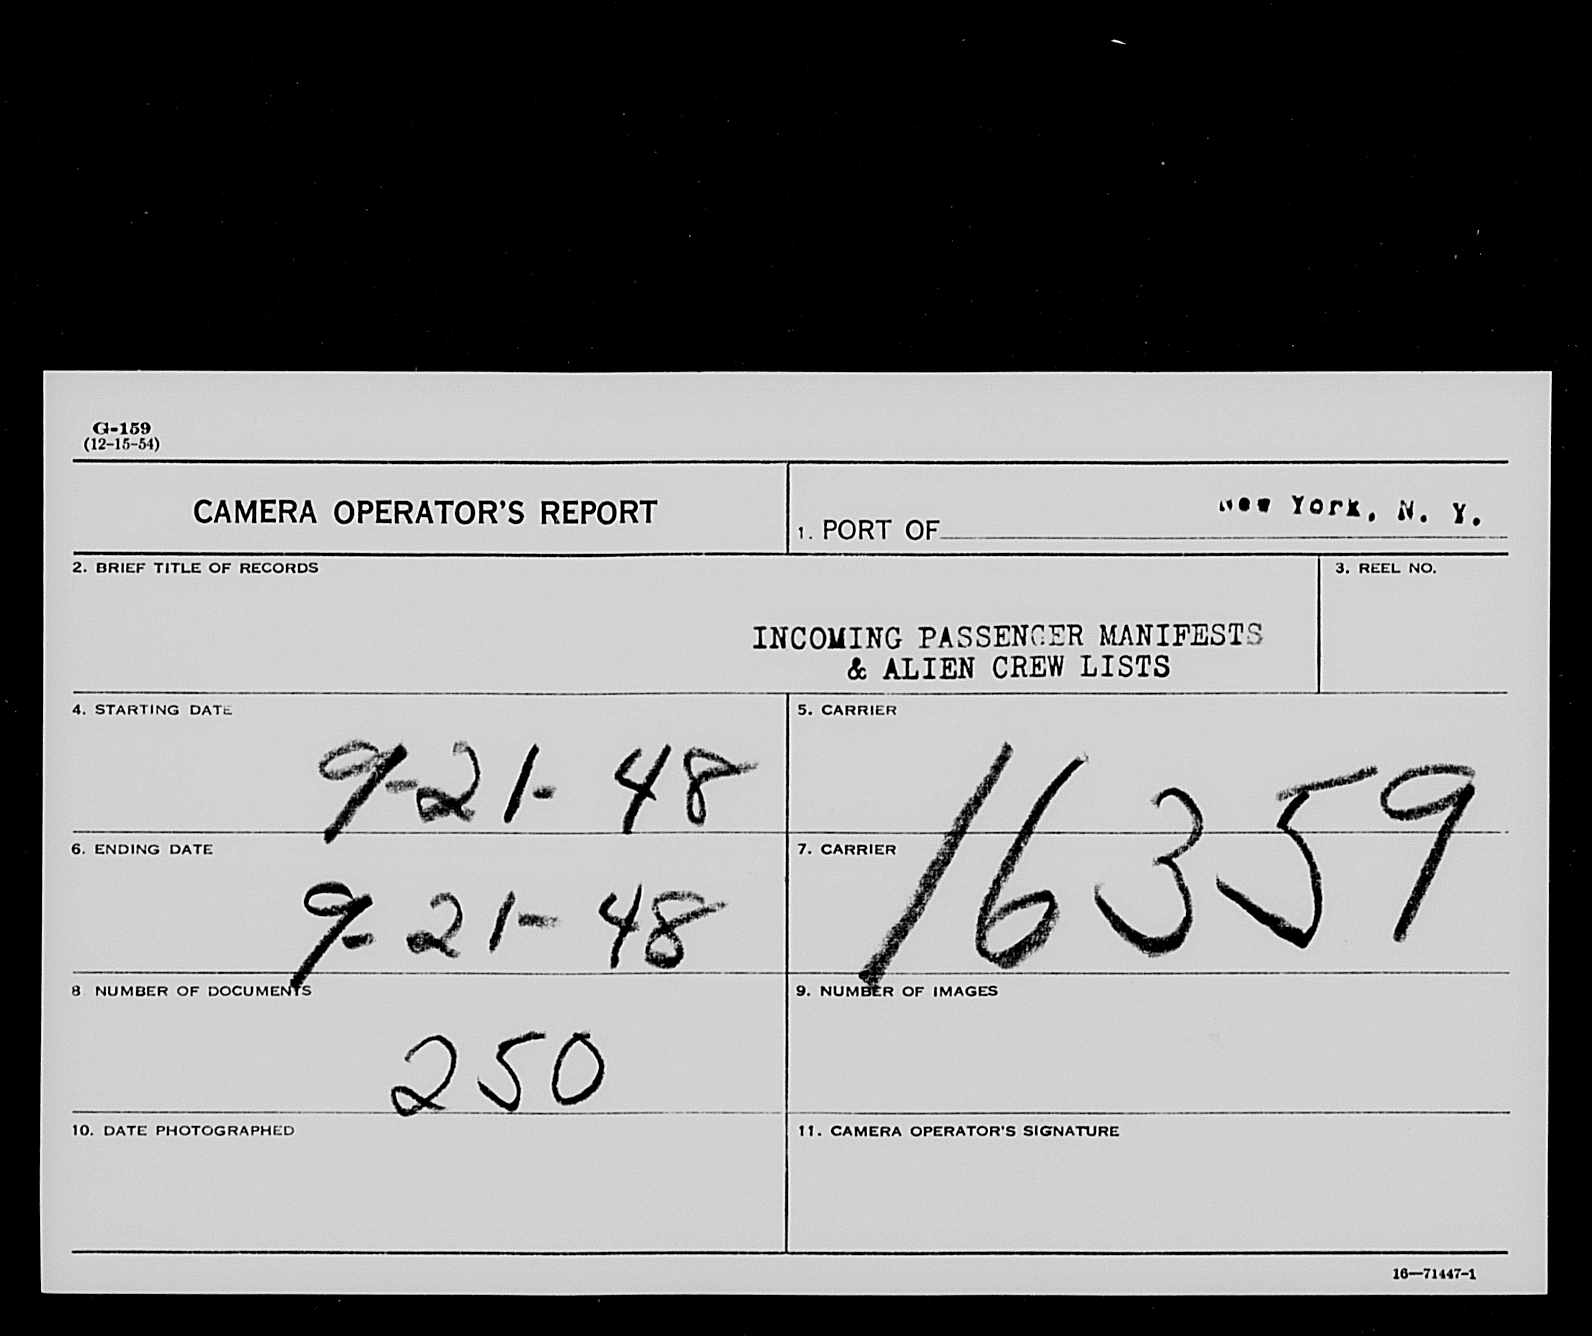 G-159
(12-15-54)
CAMERA OPERATOR'S REPORT
1. PORT OF New York, N. Y.
2. BRIEF TITLE OF RECORDS
3. REEL NO.
INCOMING PASSENGER MANIFESTS
& ALIEN CREW LISTS
4. STARTING DATE
9-21-48
5. CARRIER
16359
6. ENDING DATE
9-21-48
7. CARRIER
8 NUMBER OF DOCUMENTS
250
9. NUMBER OF IMAGES
10. DATE PHOTOGRAPHED
11. CAMERA OPERATOR'S SIGNATURE
16—71447-1